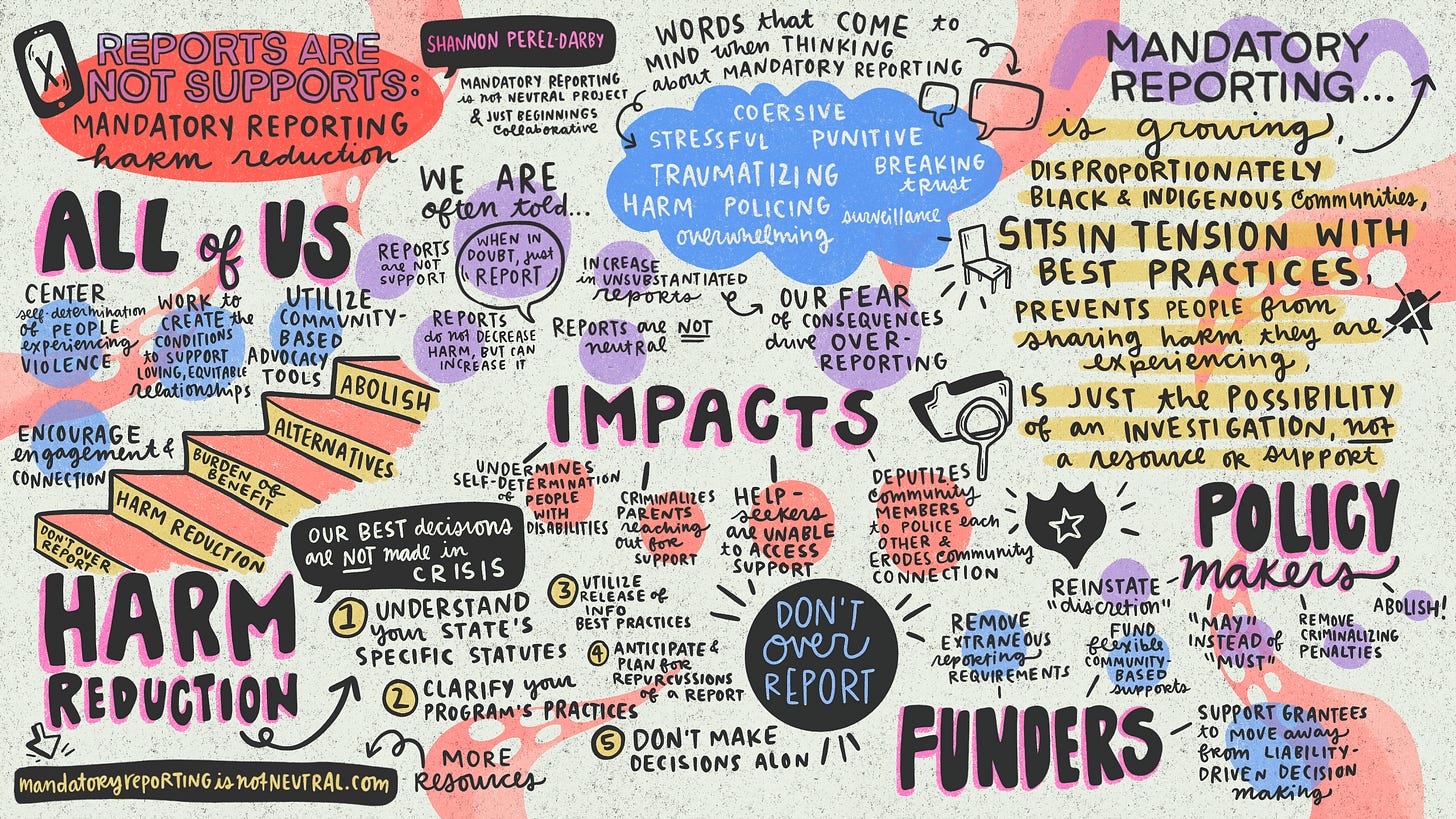 X
REPORTS ARE
NOT SUPPORTS:
MANDATORY REPORTING
harm reduction
SHANNON PEREZ-DARBY
MANDATORY REPORTING
is not NEUTRAL PROJECT
& JUST BEGINNINGS
Collaborative
WORDS that COME to
MIND when THINKING
about MANDATORY REPORTING
COERSIVE
STRESSFUL PUNITIVE
TRAUMATIZING BREAKING
trust
HARM POLICING surveillance
overwhelming
MANDATORY
REPORTING...
is growing,
DISPROPORTIONATELY
BLACK & INDIGENOUS communities,
SITS IN TENSION WITH
BEST PRACTICES,
PREVENTS PEOPLE from
sharing harm they are
experiencing,
IS JUST the POSSIBILITY
of an INVESTIGATION, not
a resource or support
WE ARE
often told...
REPORTS
are NOT
SUPPORT
WHEN IN
DOUBT, just
REPORT
INCREASE
in UNSUBSTANTIATED
reports
REPORTS
do not DECREASE
HARM, BUT CAN
INCREASE IT
REPORTS are NOT
neutral
OUR FEAR
of CONSEQUENCES
drive OVER-
REPORTING
ALL of US
CENTER
self-determination
of PEOPLE
experiencing
VIOLENCE
WORK to
CREATE the
CONDITIONS
to SUPPORT
LOVING, EQUITABLE
relationships
UTILIZE
COMMUNITY-
BASED
ADVOCACY
TOOLS
ENCOURAGE
engagement &
CONNECTION
ABOLISH
ALTERNATIVES
BURDEN of
BENEFIT
HARM REDUCTION
DON'T OVER
REPORT
IMPACTS
UNDERMINES
SELF-DETERMINATION
of PEOPLE
WITH
DISABILITIES
CRIMINALIZES
PARENTS
reaching
out for
SUPPORT
HELP-
seekers
are UNABLE
to ACCESS
SUPPORT
DEPUTIZES
community
MEMBERS
to POLICE each
OTHER &
ERODES community
CONNECTION
HARM
REDUCTION
OUR BEST decisions
are NOT made in
CRISIS
1 UNDERSTAND
your STATE'S
SPECIFIC STATUTES
2 CLARIFY your
PROGRAM'S PRACTICES
3 UTILIZE
RELEASE of
INFO
BEST PRACTICES
4 ANTICIPATE &
PLAN for
REPURCUSSIONS
of a REPORT
5 DON'T MAKE
DECISIONS ALON
DON'T
over
REPORT
mandatoryreportingisnotNEUTRAL.com
MORE
Resources
POLICY
makers
REINSTATE
"discretion"
"MAY"
INSTEAD of
"MUST"
REMOVE
CRIMINALIZING
PENALTIES
ABOLISH!
FUNDERS
REMOVE
EXTRANEOUS
reporting
REQUIREMENTS
FUND
flexible
COMMUNITY-
BASED
supports
SUPPORT GRANTEES
to MOVE away
from LIABILITY-
DRIVEN DECISION
making